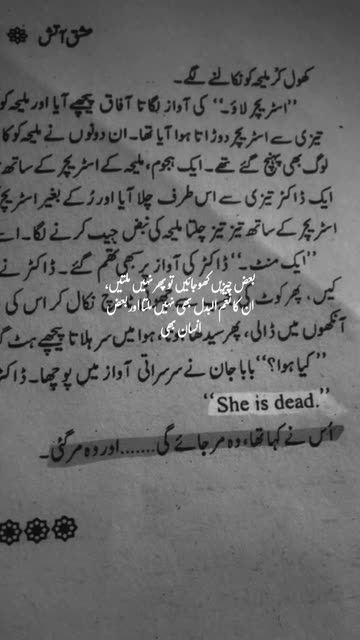 عشق آتش
کھول کر ملیحہ کو نکالنے لگے۔
”اسٹریچر لاؤ۔“ کی آواز لگاتا آفاق پیچھے آیا اور ملیحہ کو
تیزی سے اسٹریچر دوڑاتا ہوا آیا تھا۔ ان دونوں نے ملیحہ کو
لوگ بھی پہنچ گئے تھے۔ ایک ہجوم، ملیحہ کے اسٹریچر کے ساتھ
ایک ڈاکٹر تیزی سے اس طرف چلا آیا اور رُکے بغیر اسٹریچر
اسٹریچر کے ساتھ تیز تیز چلتا ملیحہ کی نبض چیک کرنے لگا۔
”ایک منٹ۔“ ڈاکٹر کی آواز پر سبھی تھم گئے۔ ڈاکٹر نے
بعض چیزیں کھو جائیں تو پھر نہیں ملتیں،
کیں، پھر کوٹ کی نکال کر اس کی
ان کا نعم البدل بھی نہیں ملتا اور بعض
انسان بھی
آنکھوں میں ڈالی، پھر سیدھا ہوا میں سر ہلاتا پیچھے ہٹ
”کیا ہوا؟“ بابا جان نے سرسراتی آواز میں پوچھا۔
“She is dead.”
اُس نے کہا تھا، وہ مر جائے گی.......اور وہ مر گئی۔